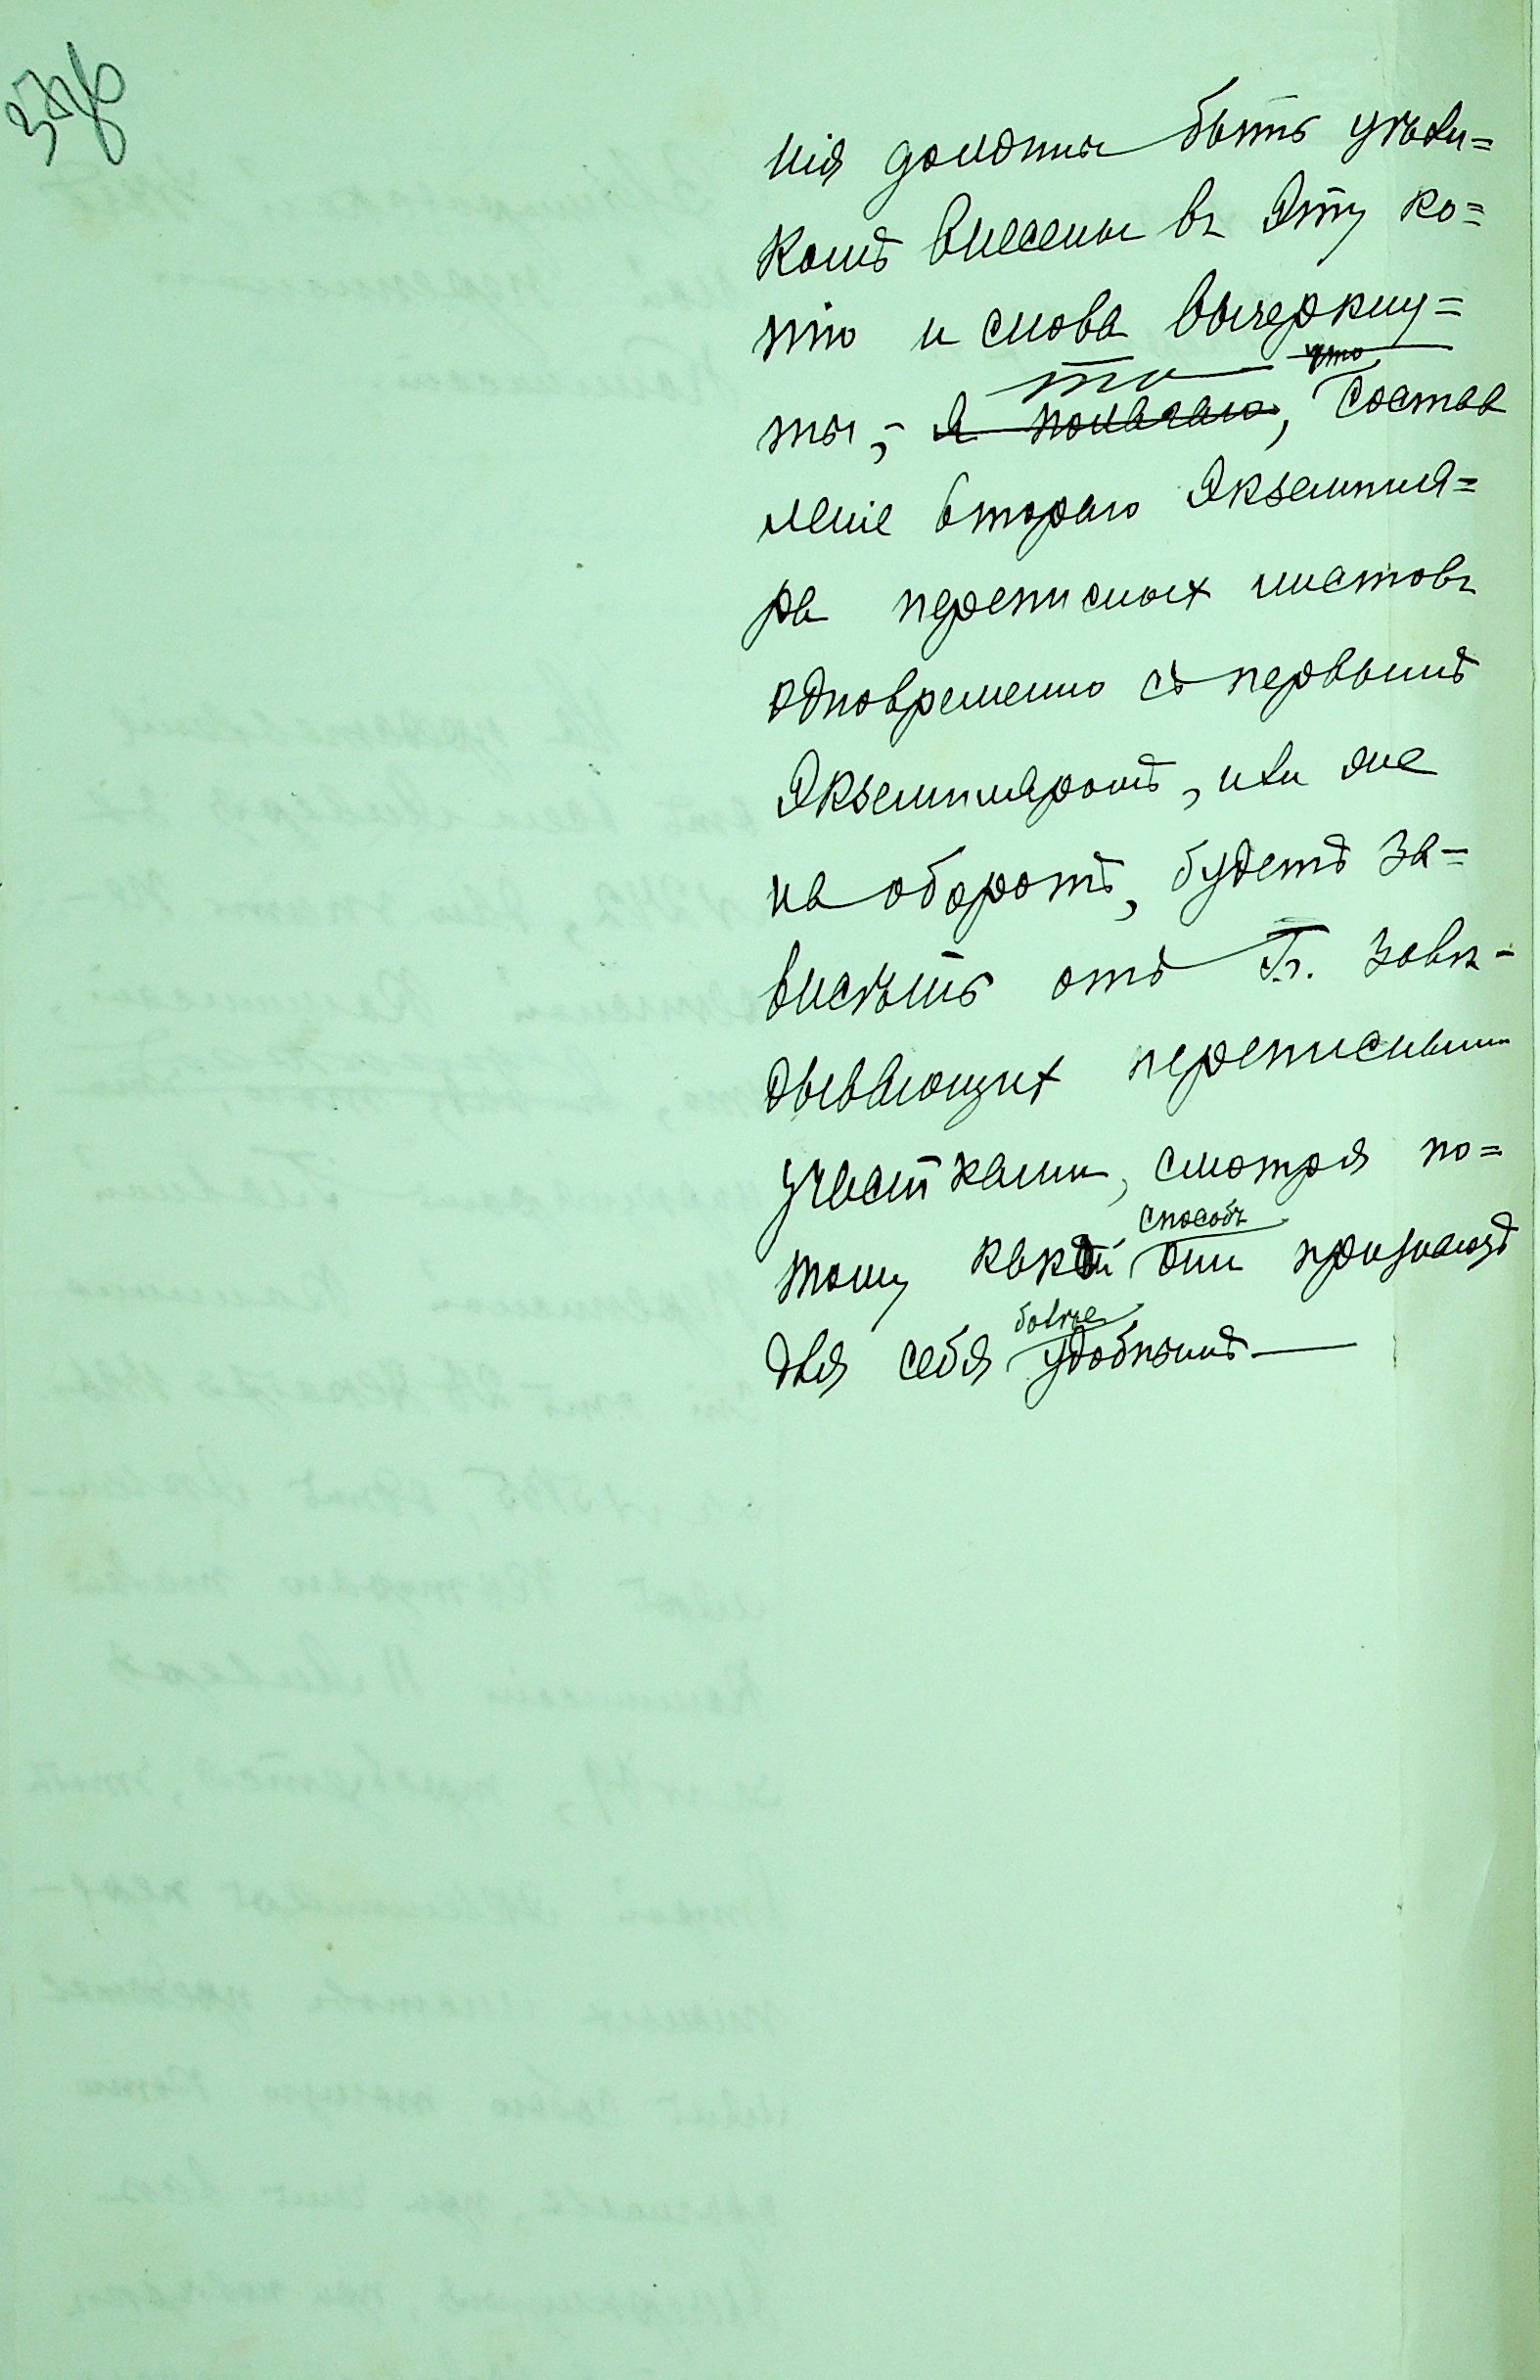 нія должны быть цѣли=
комъ внесены въ эту ко=
пію и снова вычеркну=
то что
ты, - я полагаю, состав
леніе втораго экземпля=
ра переписныхъ листовъ
одновременно съ первымъ
экземпляромъ, или же
на оборотъ, будетъ за=
висѣть отъ Гг. Завѣ-
дывающихъ переписными
участками, смотря по=
способъ
тому какой они признаютъ
болѣе
для себя удобнымъ